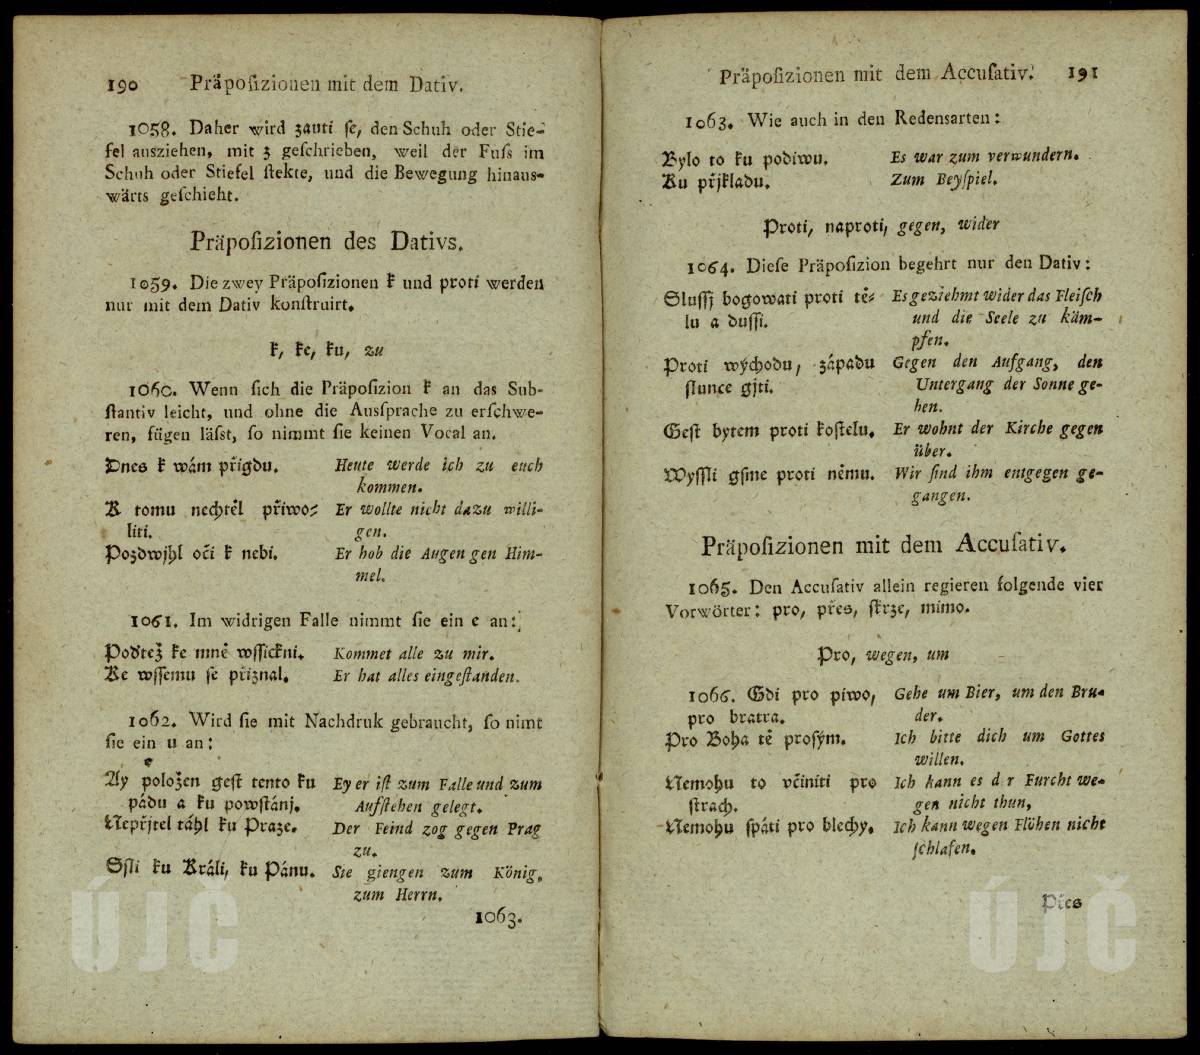 190 Präpoſizionen mit dem Dativ.
1058. Daher wird zauti ſe, den Schuh oder Stie-
fel ausziehen, mit z geſchrieben, weil der Fuſs im
Schuh oder Stiefel ſtekte, und die Bewegung hinaus-
wärts geſchieht.
Präpoſizionen des Dativs.
1059. Die zwey Präpoſizionen k und proti werden
nur mit dem Dativ konſtruirt.
k, ke, ku, zu
1060. Wenn ſich die Präpoſizion k an das Sub-
ſtantiv leicht, und ohne die Ausſprache zu erſchwe-
ren, fügen läſst, ſo nimmt ſie keinen Vocal an.
Dnes k wám přigdu. Heute werde ich zu euch
kommen.
K tomu nechtěl přiwo- Er wollte nicht dazu willi-
liti. gen.
Pozdwjhl oči k nebi. Er hob die Augen gen Him-
mel.
1061. Im widrigen Falle nimmt ſie ein e an:
Poďtež ke mně wſſickni. Kommet alle zu mir.
Ke wſſemu ſe přiznal. Er hat alles eingeſtanden.
1062. Wird ſie mit Nachdruk gebraucht, ſo nimt
ſie ein u an:
Ay položen geſt tento ku Ey er iſt zum Falle und zum
pádu a ku powſtánj. Aufſtehen gelegt.
Nepřjtel táhl ku Praze. Der Feind zog gegen Prag
zu.
Sſli ku Králi, ku Pánu. Sie giengen zum König,
zum Herrn.
1063.
ÚJČ
Präpoſizionen mit dem Accuſativ. 191
1063. Wie auch in den Redensarten:
Bylo to ku podiwu. Es war zum verwundern.
Ku přjkladu. Zum Beyſpiel.
Proti, naproti, gegen, wider
1064. Dieſe Präpoſizion begehrt nur den Dativ:
Sluſſj bogowati proti tě- Es geziehmt wider das Fleiſch
lu a duſſi. und die Seele zu käm-
pfen.
Proti východu, západu Gegen den Aufgang, den
ſlunce gjti. Untergang der Sonne ge-
hen.
Geſt bytem proti koſtelu. Er wohnt der Kirche gegen
über.
Wyſſli gſme proti němu. Wir ſind ihm entgegen ge-
gangen.
Präpoſizionen mit dem Accuſativ.
1065. Den Accuſativ allein regieren folgende vier
Vorwörter: pro, přes, ſkrze, mimo.
Pro, wegen, um
1066. Gdi pro piwo, Gehe um Bier, um den Bru-
pro bratra. der.
Pro Boha tě proſým. Ich bitte dich um Gottes
willen.
Nemohu to včiniti pro Ich kann es d r Furcht we-
ſtrach. gen nicht thun,
Nemohu ſpáti pro blechy. Ich kann wegen Flöhen nicht
ſchlafen.
Přes
ÚJČ